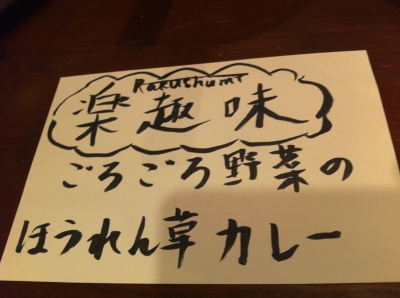 Rakushumi
楽趣味
ごろごろ野菜の
ほうれん草カレー